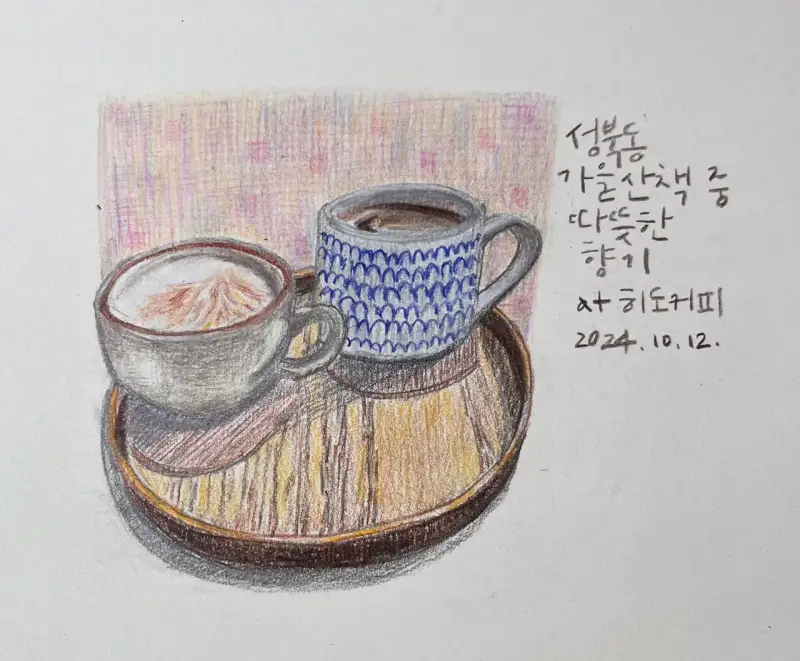 성북동
가을산책 중
따뜻한
향기
at 히도커피
2024.10.12.